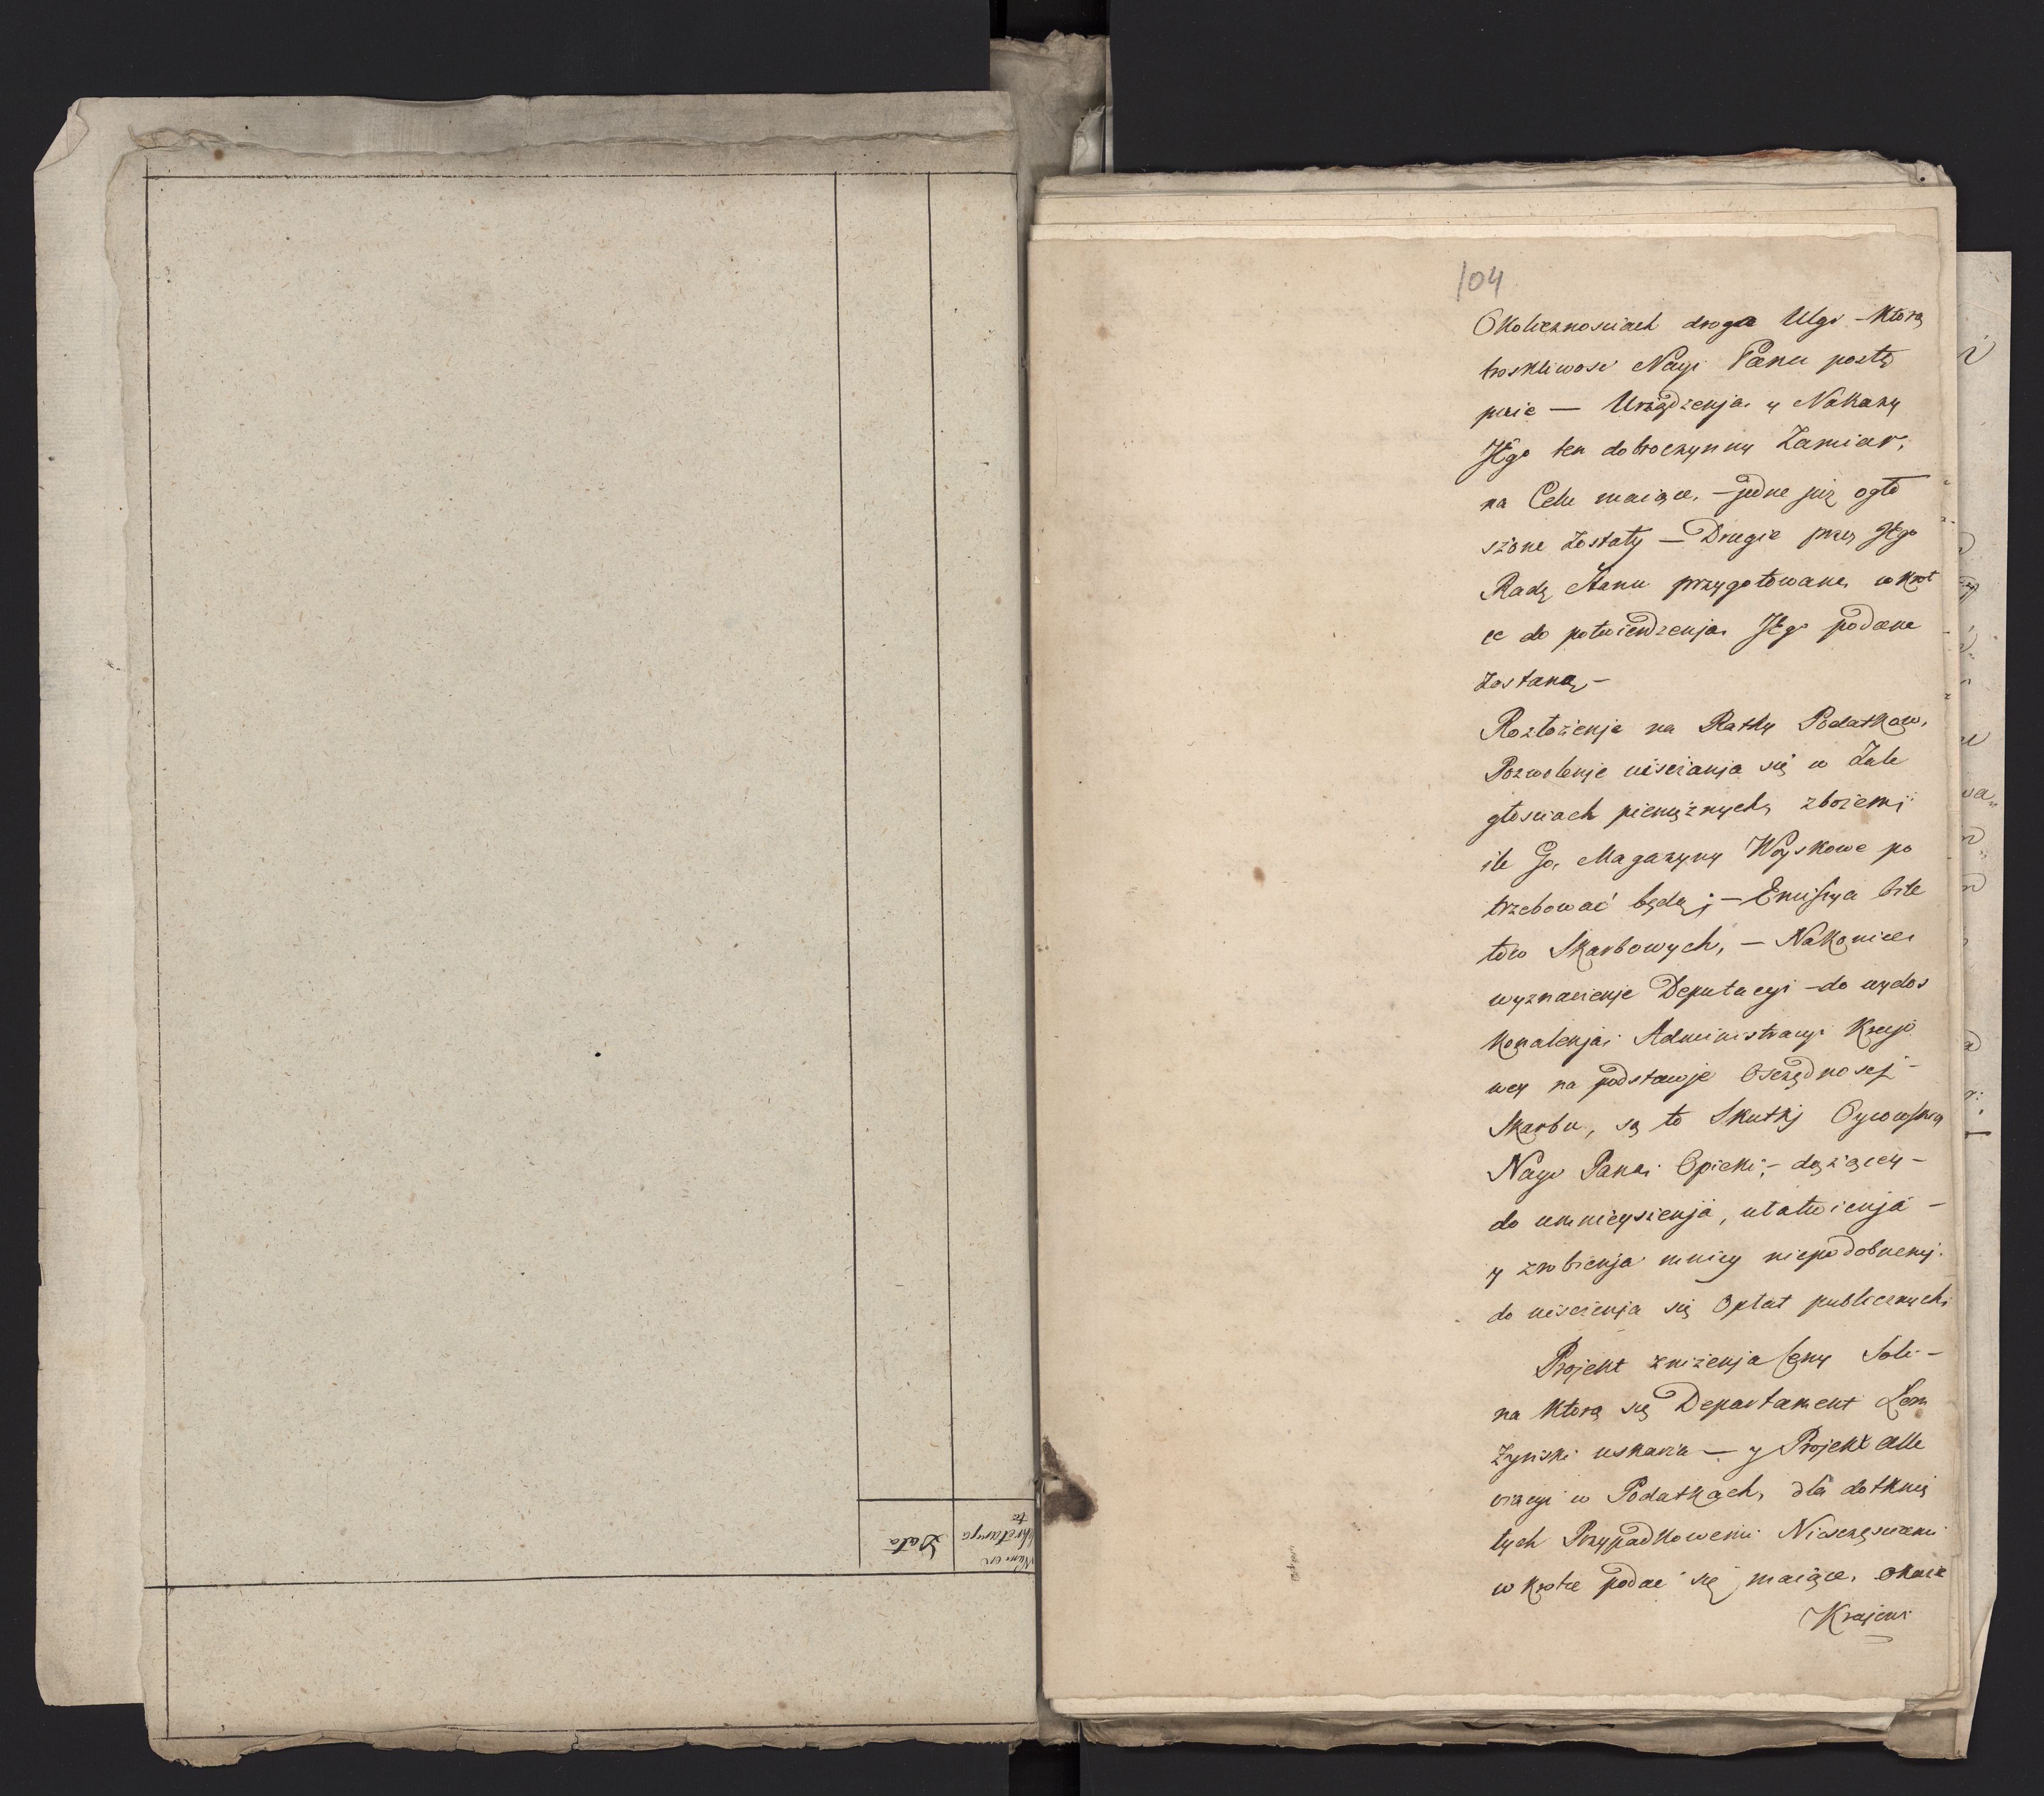 Data
104
Okolicznosciach droga Ulgi – którą
troskliwosc Nayi Panu postę
puie — Urządzenja y Nakazy
JEgo ten dobroczynny Zamiar,
na Celu maiące, – jedne już ogło
szone Zostały — Drugie przez JEgo
Radę Stanu przygotowane, wkrot
ce do potwierdzenja JEgo podane
Zostaną, –
Rozłożenje na Ratky Podatkow,
Pozwolenje uiscianja się w Zale
głosciach pieniężnych, zbożem,
ile Go, Magazyny Woyskowe po
trzebować będą; – Emissya bile
tow Skarbowych, — Nakoniec
wyznaczenje Deputacyi – do wydos
konalenja Administracyi Krajo
wey na podstawje Osczędnosci –
Skarbu, są to Skutkj Oycowską
Nayo Pana Opieki, – dążącey –
do umnieyszenja, ułatwienja –
y zrobienja mniey niepodobnemj
do uisczenja się Opłat publicznych,
Projekt zniżenja Ceny Soli –
na którą się Departament Łom
Zynski uskarża — y Projekt alle
viacyi w Podatkach, dla dotknię
tych Przypadkowemi Niesczęsciami
wkrotce podac się maiące, okaże
Krajowi